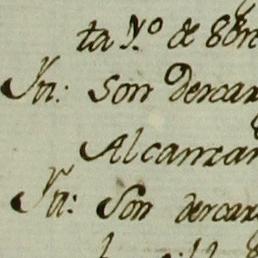 ta N.º de 8bre
Yn: Son Dercar
Alcanzar
Yn: Son dercar